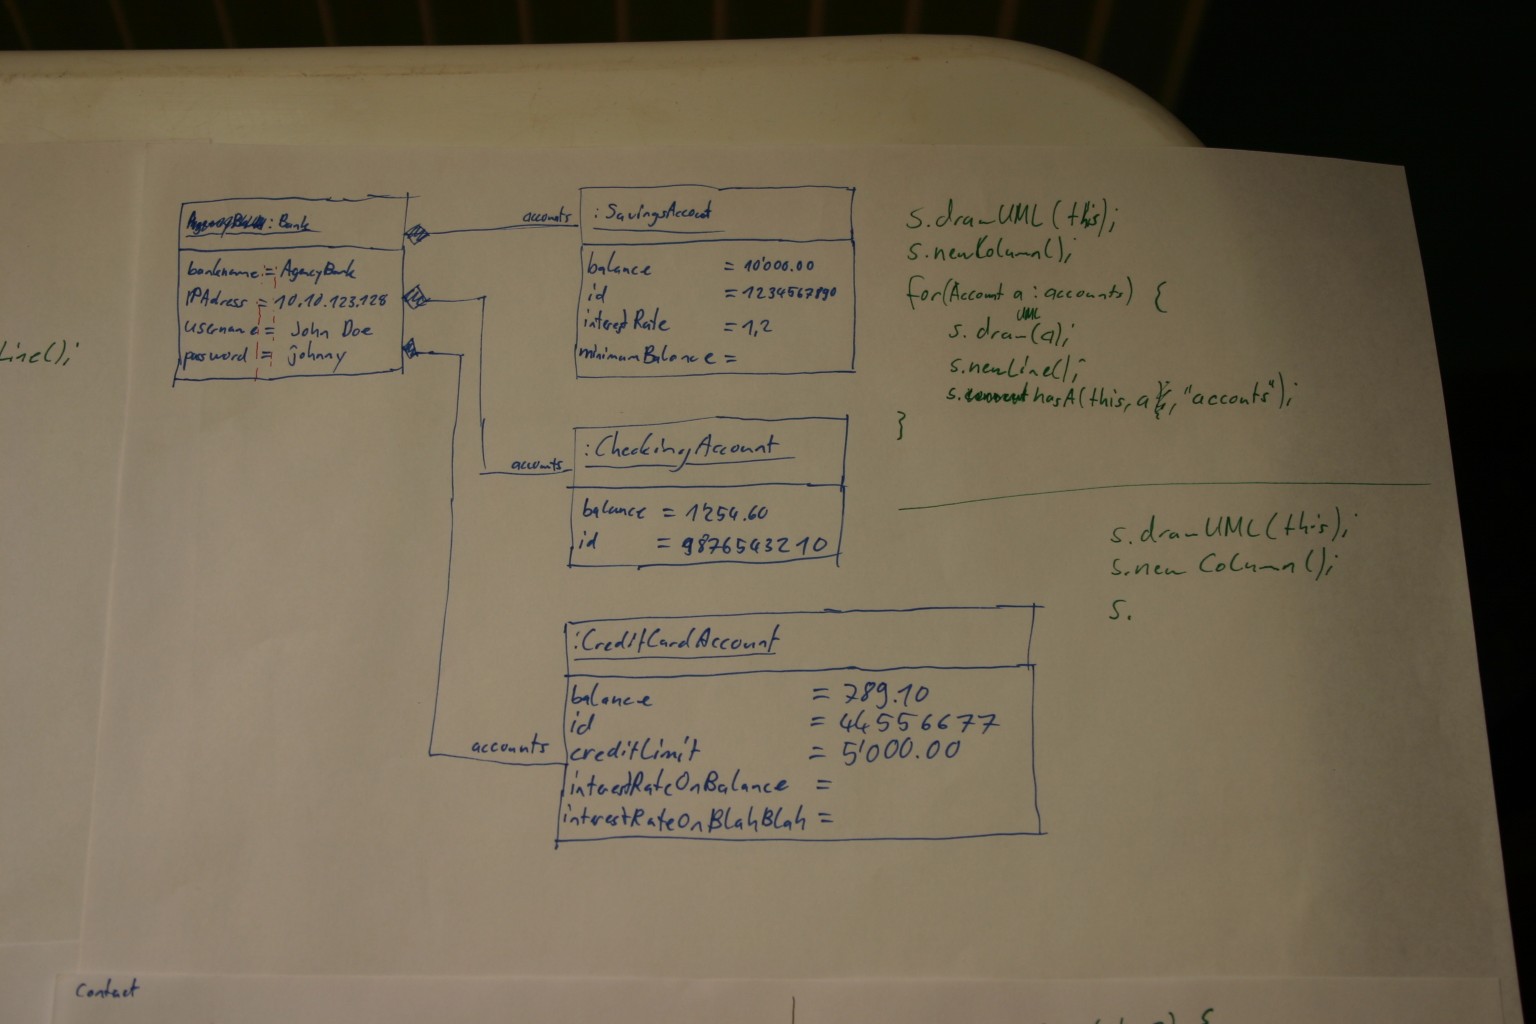 : Bank
bankname = AgencyBank
IPAdress = 10.10.123.128
username = John Doe
password = johnny
accounts
: SavingsAccount
balance = 10'000.00
id = 1234567890
interestRate = 1,2
minimumBalance =
accounts
: CheckingAccount
balance = 1'254.60
id = 9876543210
accounts
:CreditCardAccount
balance = 789.10
id = 44556677
creditLimit = 5'000.00
interestRateOnBalance =
interestRateOnBlahBlah =
s.drawUML(this);
s.newColumn();
for(Account a : accounts) {
s.drawUML(a);
s.newLine();
s.hasA(this, a, "accounts");
}
s.drawUML(this);
s.new Column();
s.
Line();
Contact